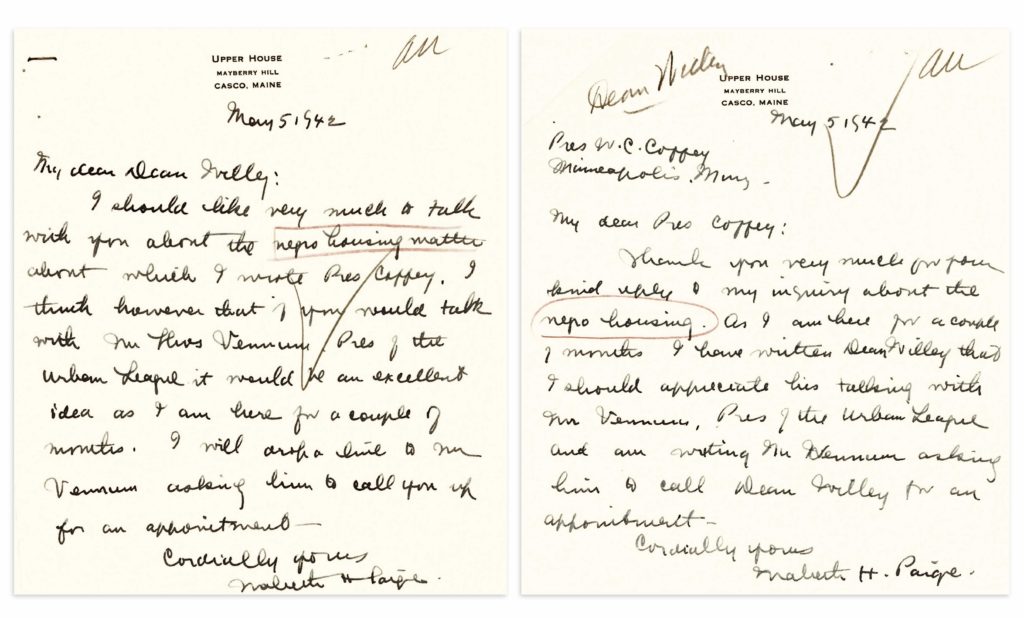 au
UPPER HOUSE
MAYBERRY HILL
CASCO, MAINE
May 5 1942
My dear Dean Willey:
I should like very much to talk
with you about the negro housing matter
about which I wrote Pres Coffey. I
think however that if you would talk
with Mr Thos Vennum, Pres of the
Urban League it would be an excellent
idea as I am here for a couple of
months. I will drop a line to Mr
Vennum asking him to call you up
for an appointment—
Cordially yours
Mabeth H Paige.
Dean Willey
au
UPPER HOUSE
MAYBERRY HILL
CASCO, MAINE
May 5 1942
Pres W. C. Coffey
Minneapolis, Minn.
My dear Pres Coffey:
Thank you very much for your
kind reply to my inquiry about the
negro housing. As I am here for a couple
of months I have written Dean Willey that
I should appreciate his talking with
Mr Vennum, Pres of the Urban League
and am writing Mr Vennum asking
him to call Dean Willey for an
appointment—
Cordially yours
Mabeth H. Paige.